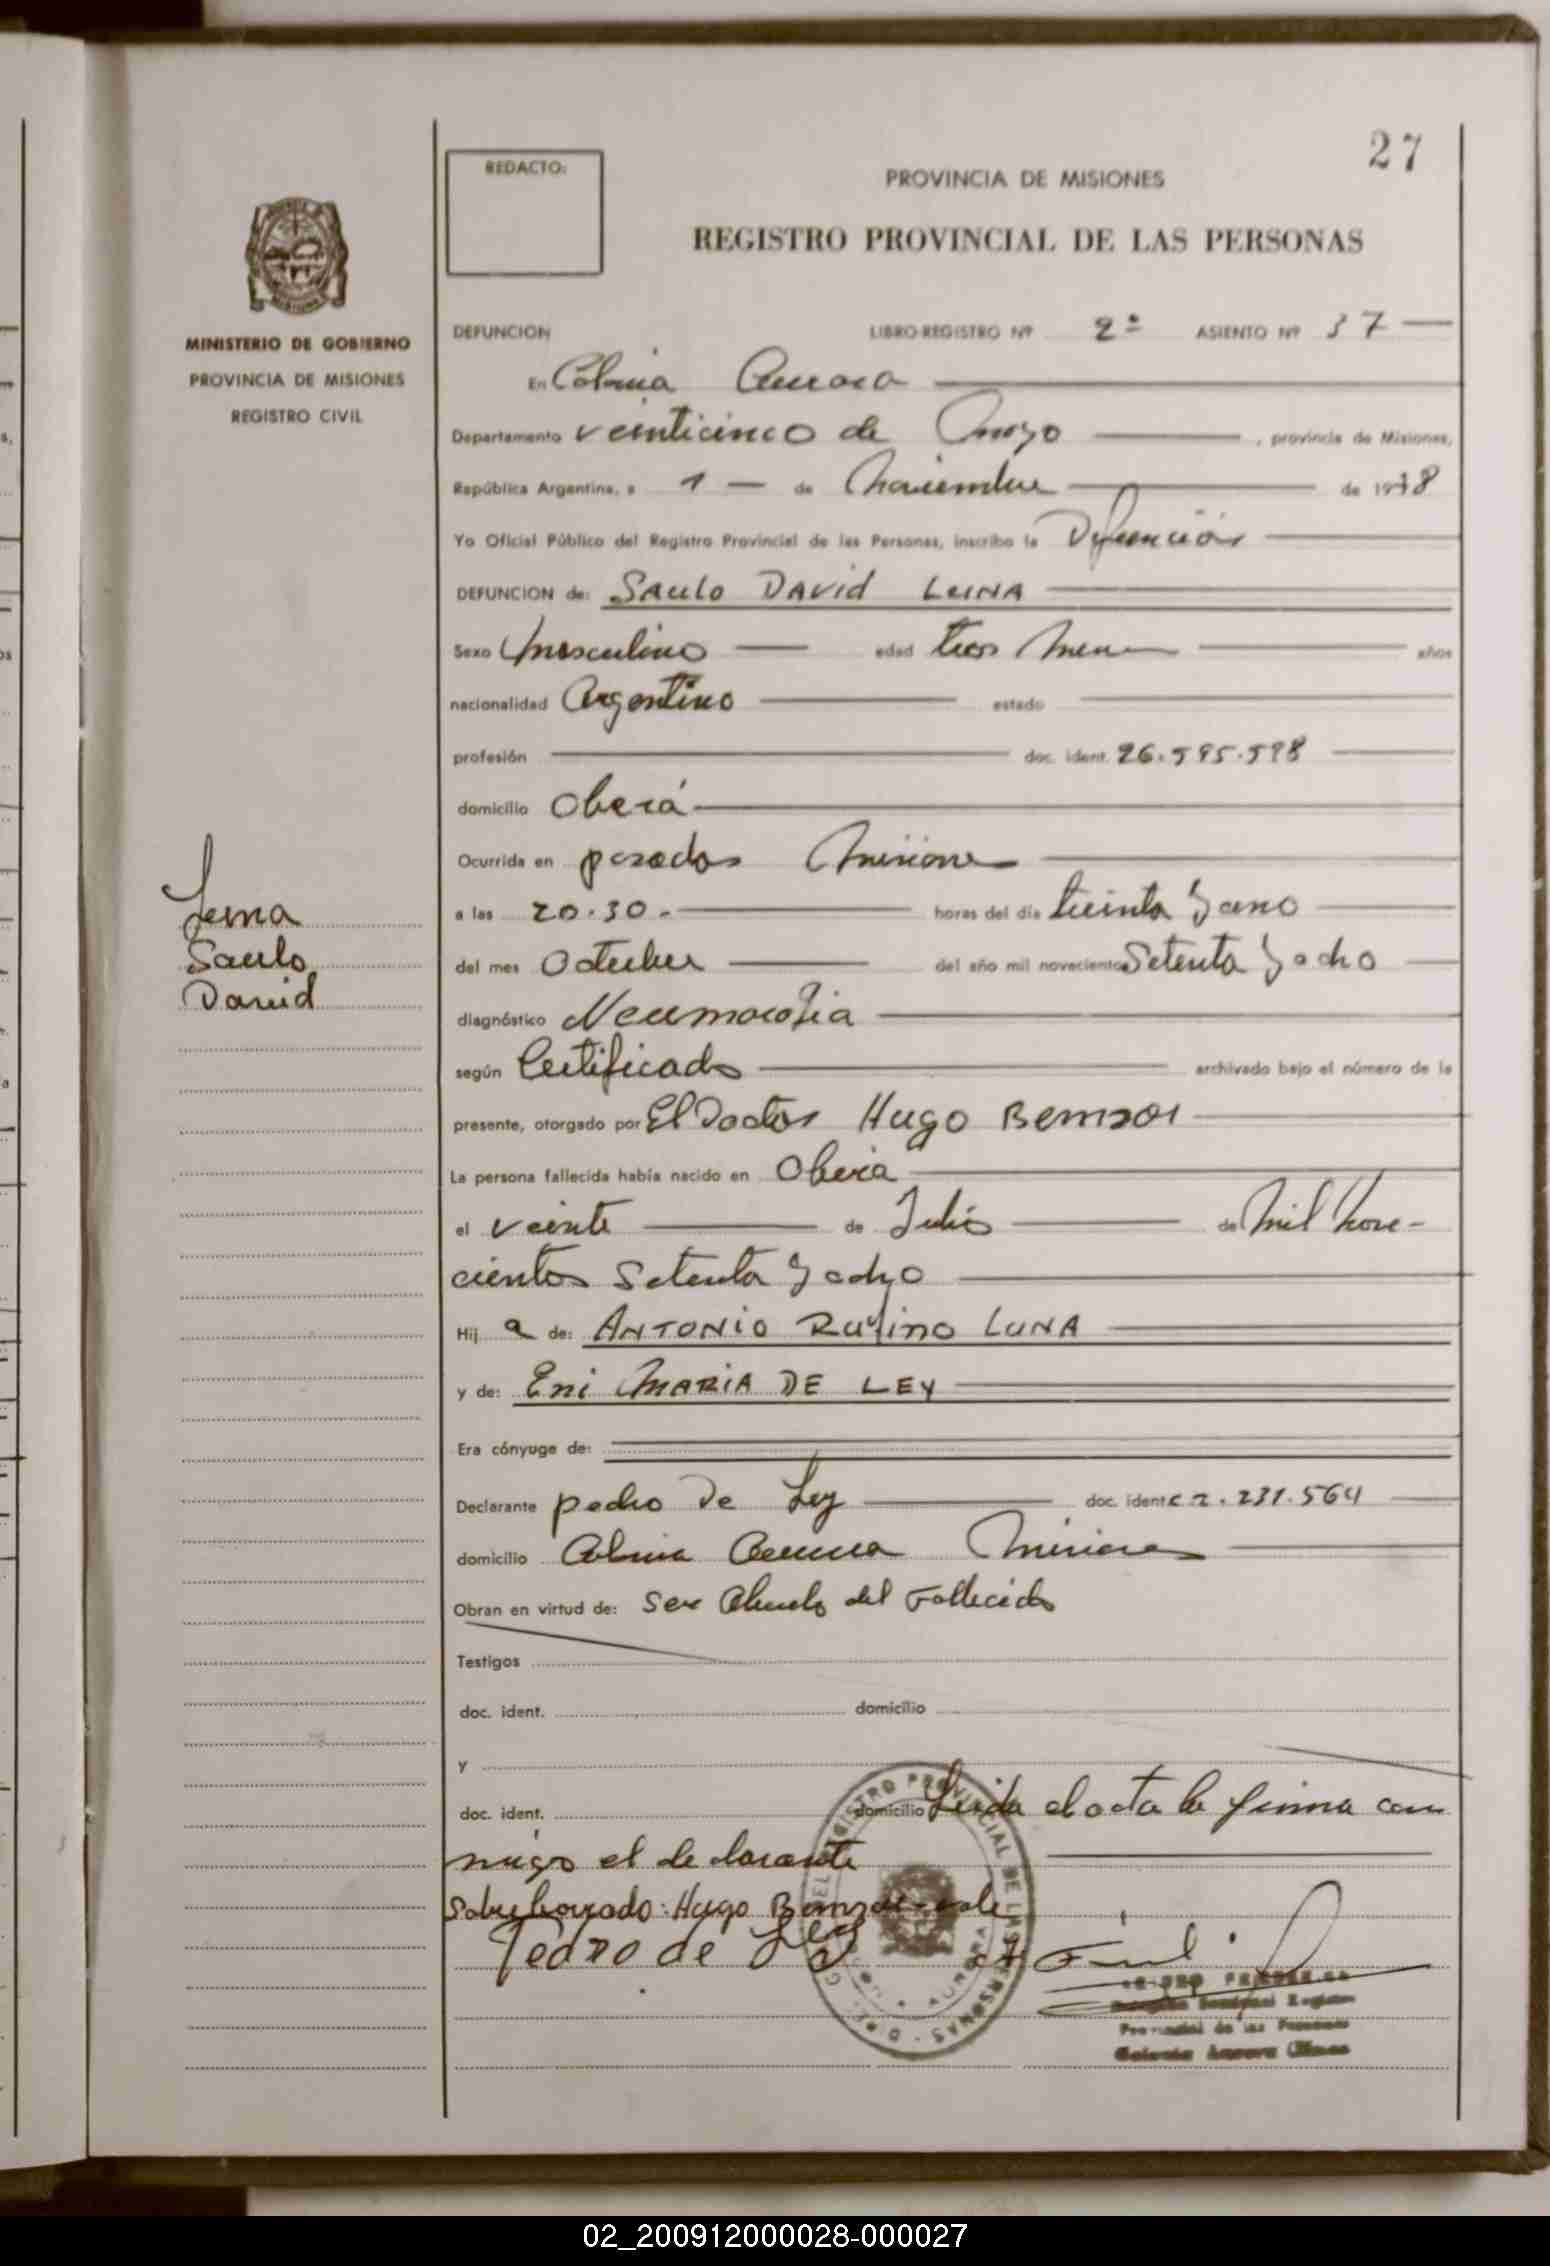 27
REDACTO:
PROVINCIA DE MISIONES
REGISTRO PROVINCIAL DE LAS PERSONAS
MINISTERIO DE GOBIERNO
PROVINCIA DE MISIONES
REGISTRO CIVIL
DEFUNCION LIBRO-REGISTRO Nº 2º ASIENTO Nº 37
En Colonia Aurora
Departamento veinticinco de Mayo, provincia de Misiones,
República Argentina, a 1 de Noviembre de 1978
Yo Oficial Público del Registro Provincial de las Personas, inscribo la Defunción
DEFUNCION de: SAULO DAVID LUNA
Sexo Masculino edad tres Meses años
nacionalidad Argentino estado
profesión doc. ident. 26.595.598
domicilio Oberá
Ocurrida en posadas Misiones
a las 20.30. horas del día treinta y uno
del mes Octubre del año mil novecientos Setenta y ocho
diagnóstico
según Certificado archivado bajo el número de la
presente, otorgado por El Doctor Hugo
La persona fallecida había nacido en Oberá
el veinte de Julio de Mil Nove-
cientos Setenta y ocho
Hij o de: ANTONIO Rufino LUNA
y de: Eni MARIA DE LEY
Era cónyuge de:
Declarante pedro De Ley doc. ident. C 2.231.564
domicilio Colonia Aurora Misiones
Obran en virtud de: Ser Abuelo del Fallecido
Luna
Saulo
David
Testigos
doc. ident. domicilio
y
doc. ident. domicilio Leida el acta la firma con
migo el declarante
Sobre borrado: Hugo vale
Pedro de Ley
REGISTRO PROVINCIAL DE LAS PERSONAS
AURORA
Registro
Provincial de las Personas
Colonia Aurora
02_200912000028-000027